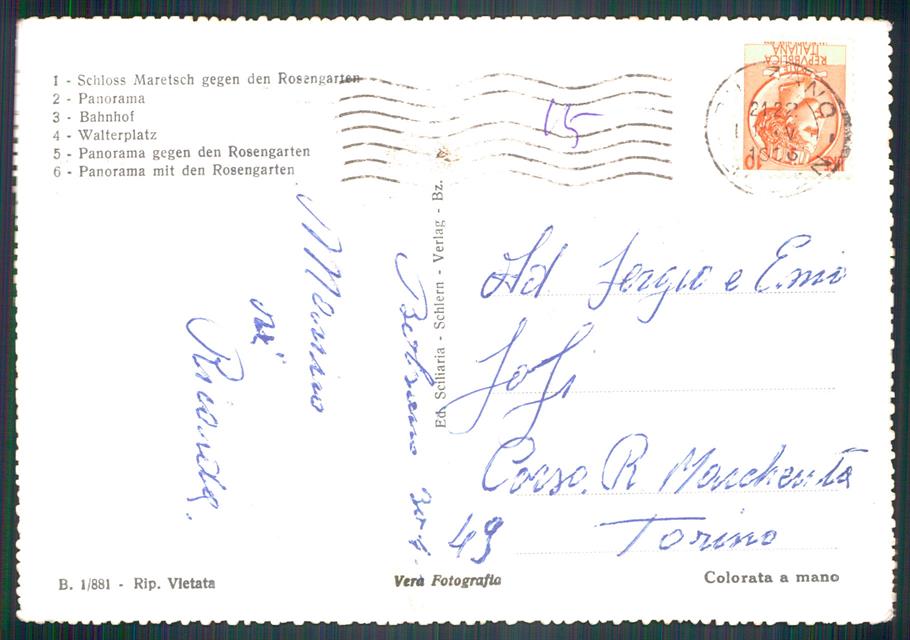 1 - Schloss Maretsch gegen den Rosengarten
2 - Panorama
3 - Bahnhof
4 - Walterplatz
5 - Panorama gegen den Rosengarten
6 - Panorama mit den Rosengarten
15
REPVBBLICA
ITALIANA
Ed. Sciliaria - Schlern - Verlag - Bz.
Massimo
vi
Ricorda.
Sergio e
Corso R Margherita
49
Torino
B. 1/881 - Rip. Vietata
Vera Fotografia
Colorata a mano